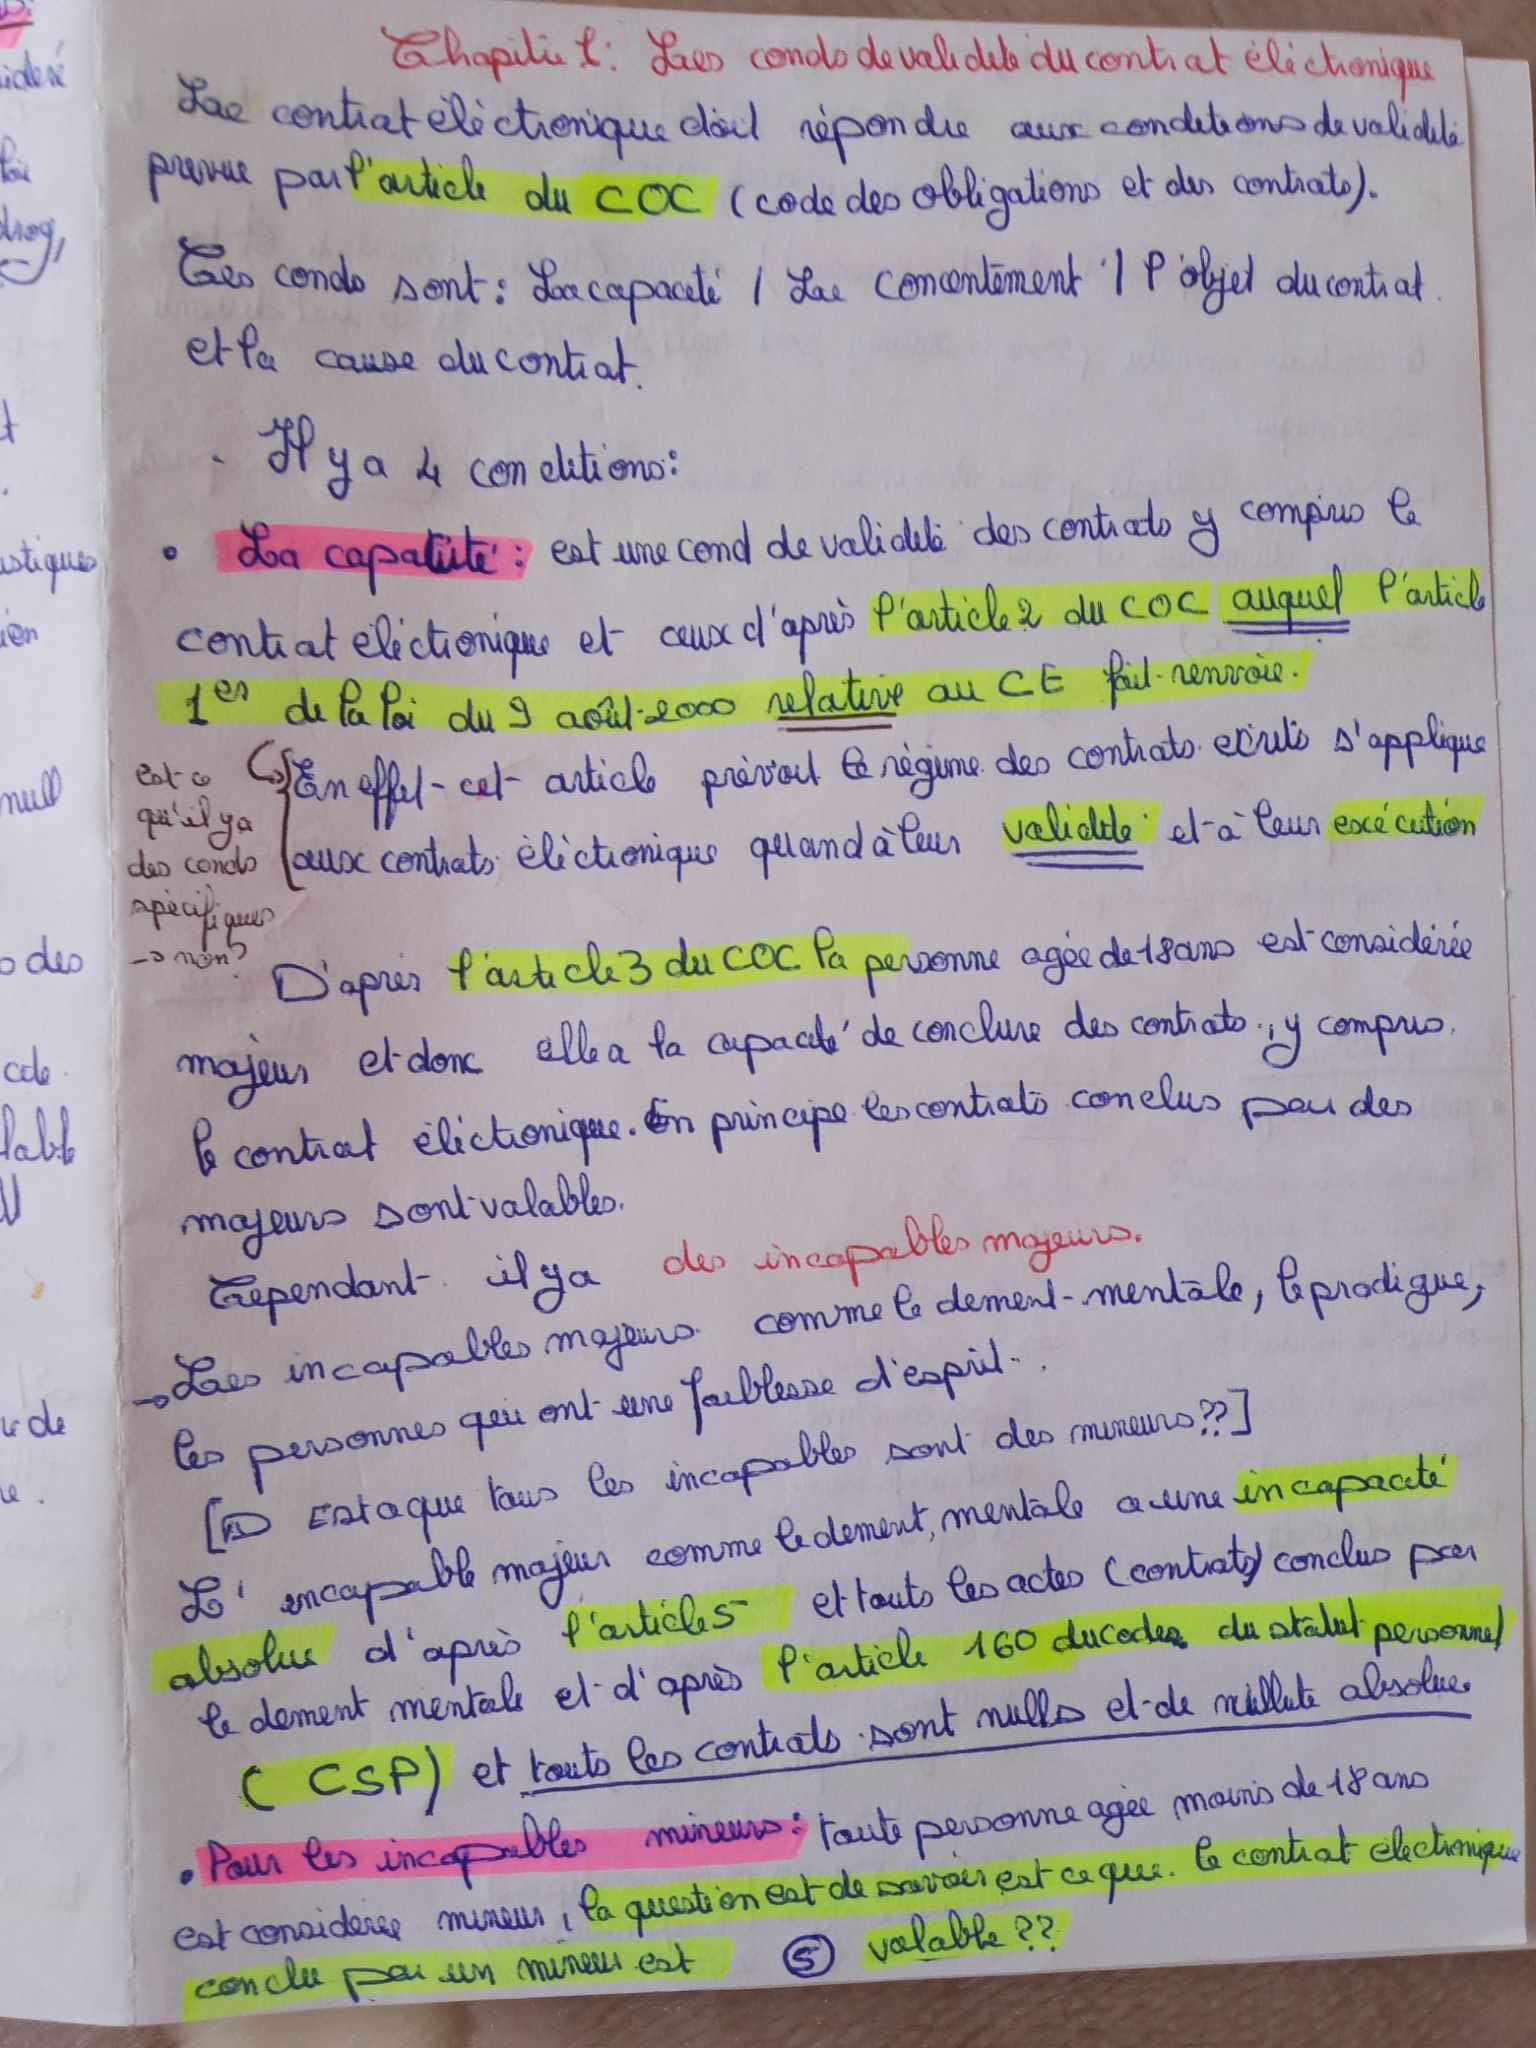 Chapitre 1: Les conds de validité du contrat éléctronique
Le contrat éléctronique doit répondre aux conditions de validité
prevue par l'article du COC (code des obligations et des contrats).
Ces conds sont: La capacité / Le concentement / l'objet du contrat
et la cause du contrat.
- Il y a 4 conditions:
• La capacité: est une cond de validité des contrats y compris le
contrat éléctronique et ceux d'après l'article 2 du COC auquel l'article
1er de la loi du 9 août 2000 relative au CE fait renvoie.
En effet cet article prévoit le régime des contrats ecrits s'applique
aux contrats éléctronique quand à leur validité et à leur exécution
est-ce
qu'il y a
des conds
spécifiques
→ non?
D'après l'article 3 du COC la personne agée de 18 ans est considérée
majeur et donc elle a la capacité de conclure des contrats, y compris
le contrat éléctronique. En principe les contrats conclus par des
majeurs sont valables.
Cependant il y a des incapables majeurs.
→ Les incapables majeurs comme le dement mentale, le prodigue,
les personnes qui ont une faiblesse d'esprit.
[→ Est a que tous les incapables sont des mineurs??]
L'incapable majeur comme le dement, mentale a une incapacité
absolue d'après l'article 5 et touts les actes (contrats) conclus par
le dement mentale et d'après l'article 160 du code du statut personnel
(CSP) et touts les contrats sont nulls et de nullité absolue
• Pour les incapables mineurs: toute personne agée moins de 18 ans
est considerée mineur, la question est de savoir est ce que le contrat électronique
conclu par un mineur est valable??
5